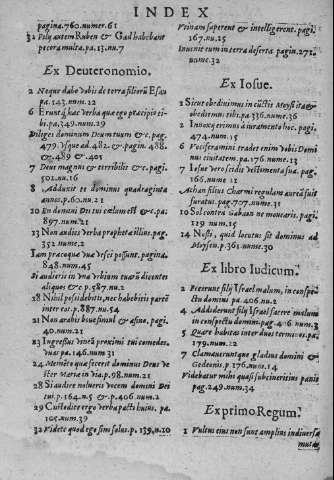 INDEX
pagina.760.numer.61
32 Filij autem Ruben & Gad habebant
pecora multa.pa.13.nu.7
Ex Deuteronomio.
2 Neque dabo vobis de terra filiorũ Esau
pa.143.num.22
6 Eruntq́; hæc verba quæ ego præcipio ti-
bi.pa.349.num.29
Diliges dominum Deum tuum &c.pag.
479. Vsque ad.482.& pagin.488.
& 489.& .405
7 Deus magnus & terribilis &c.pagi.
501.nu.16
8 Adduxit te dominus quadraginta
annos.p.60.nu.21
10 En domini Dei tui cælum est &c.pa:
897.num.21
13 Non audies verba prophetæ illius.pag.
352 num.2
Iam præcoque vna vesci possunt.pagina.
848.num.45
Si audieris in vna vrbium tuarũ dicentes
aliquos &c p.587.nu.2
18 Nihil possidebitis, nec habebitis partẽ
inter eos.p.887.nu.54
21 Non arabis boue simul & asino, pagi.
40.num.21
23 Ingressus vineā proximi tui comedes
vuas pa.146.num.31
24 Memēto quæ fecerit dominus Deus ve
ster Mariæ in via.p.98.num.21
28 Si audire nolueris vocem domini Dei
tui. p.164.n.5 &.p.406.num.2
29 Custodite ergo verba pacti huius. pa.
105.num.39
32 Videte quod ego sim solus.p.139.n.10
Vtinam saperent & intelligerent.pagi.
167.nu.25
Inuenit eum in terra deserta pagin.271.
nume.32
Ex Iosue.
2 Sicut obediuimus in cūctis Moysi ita &
obediemus tibi.pa.336.nume.36
2 Innoxij erimus à iuramento hoc. pagi.
474.num.15
6 Vociferamini tradet enim vobis Domi
nus ciuitatem.pa.176.nume.13
7 Iosue vero scidit vestimenta sua.pag.
166.nume.11
Achan filius Charmi regulam auream fuit
furatus. pag.707.num.31
10 Sol contra Gabaon ne mouearis. pagi.
119 num.15
14 Nosti, quid locutus sit dominus ad
Moysen.p.361.nume.30
Ex libro Iudicum.
2 Fecerunt filij Israel malum, in conspe-
ctu domini pa.406.nu.2
4 Addiderunt filij Israel facere malum
in conspectu domini.pag.406 num.3
5 Quare habitas inter duos terminos.pa.
179.num.12
7 Clamaueruntque gladius domini &
Gedeonis.p.176.nume.14
Videbatur mihi quasi subcinericius panis
pag.249.num.34
Ex primo Regum.
1 Vultus eius non sunt amplius in diuersa
mutat